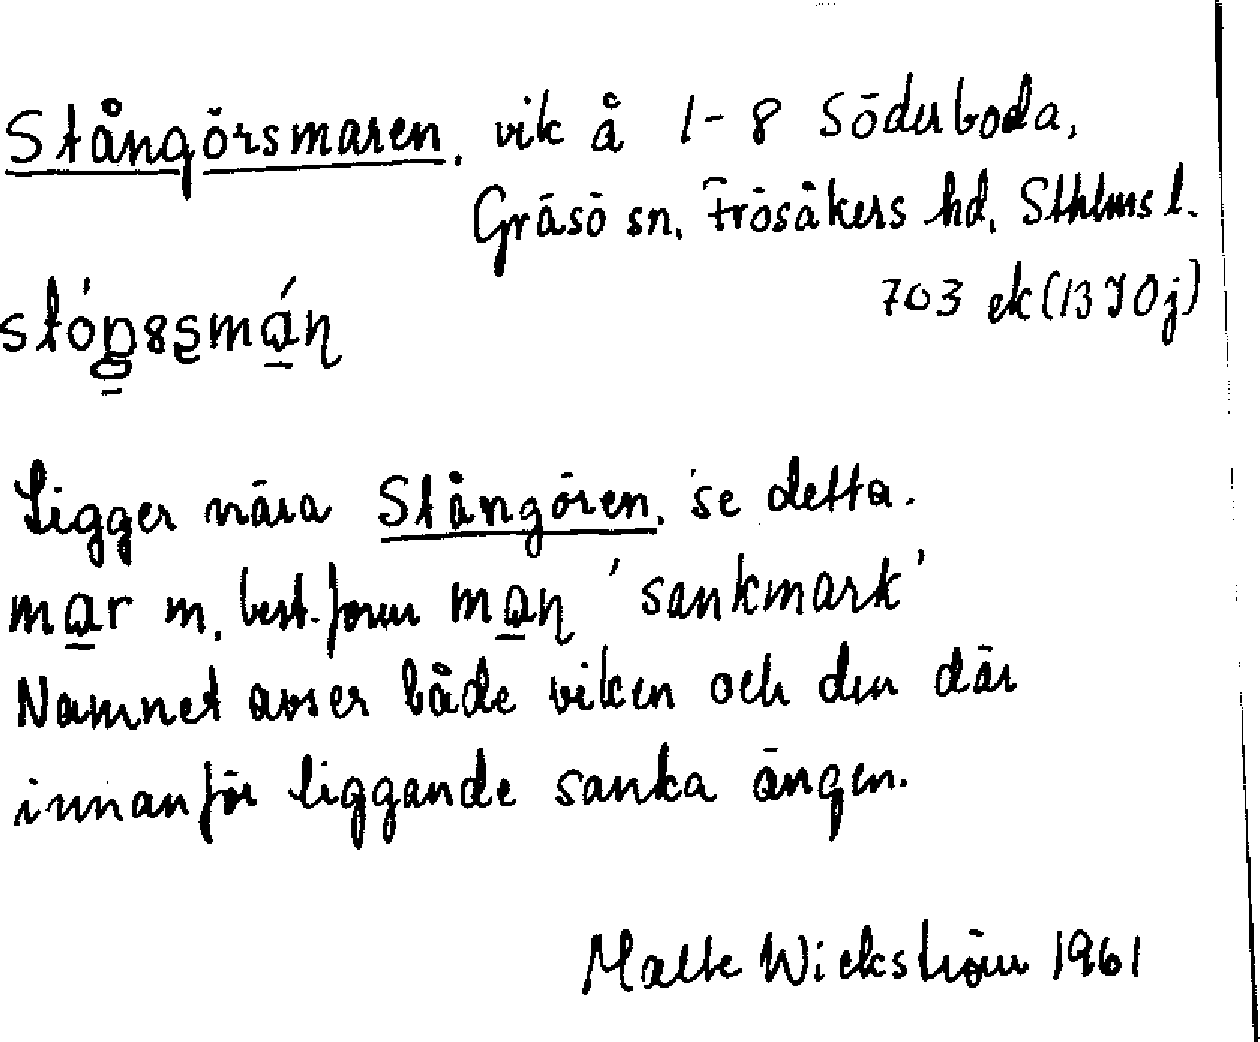 Stångörsmaren, vik å 1-8 Söderboda,
Gräsö sn, Frösåkers hd, Sthlms l.
703 ek (13 I 0j)
Ligger nära Stångören, se detta.
mar m, best. form maη 'sankmark'
Namnet avser både viken och den där
innanför liggande sanka ängen.
Malte Wickström 1961